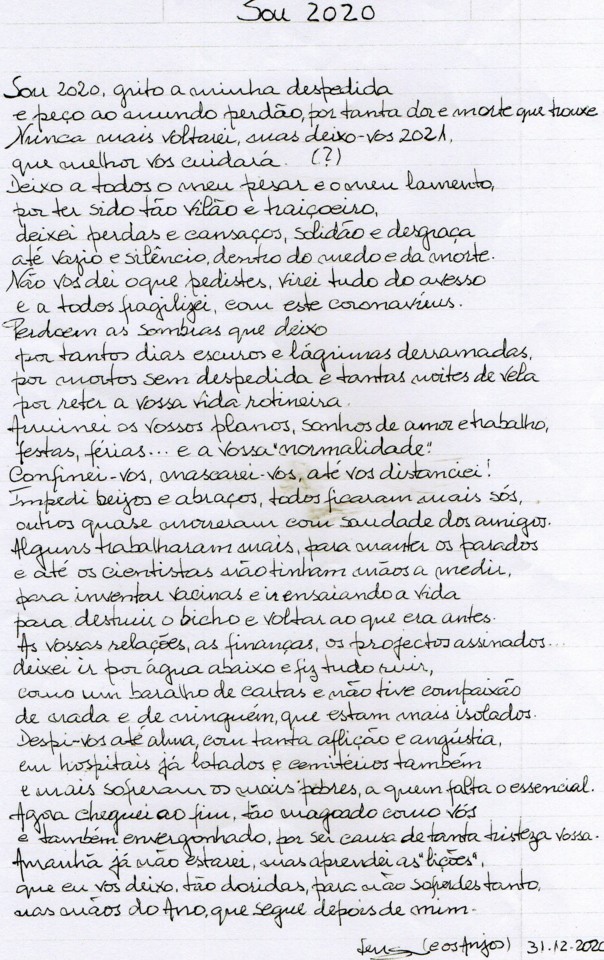 Sou 2020
Sou 2020, grito a minha despedida
e peço ao mundo perdão, por tanta dor e morte que trouxe
Nunca mais voltarei, mas deixo-vos 2021,
que melhor vos cuidará. (?)
Deixo a todos o meu pesar e o meu lamento,
por ter sido tão vilão e traiçoeiro,
deixei perdas e cansaços, solidão e desgraça
até vazio e silêncio, dentro do medo e da morte.
Não vos dei o que pedistes, virei tudo do avesso
e a todos fragilizei, com este coronavírus.
Perdoem as sombras que deixo
por tantos dias escuros e lágrimas derramadas,
por mortos sem despedida e tantas noites de vela
por reter a vossa vida rotineira.
Arruinei os vossos planos, sonhos de amor e trabalho,
festas, férias... e a vossa "normalidade".
Confinei-vos, mascarei-vos, até vos distanciei!
Impedi beijos e abraços, todos ficaram mais sós,
outros quase morreram com saudade dos amigos.
Alguns trabalharam mais, para manter os parados
e até os cientistas não tinham mãos a medir,
para inventar vacinas e ir ensaiando a vida
para destruir o bicho e voltar ao que era antes.
As vossas relações, as finanças, os projectos assinados...
deixei ir por água abaixo e fiz tudo ruir,
como um baralho de cartas e não tive compaixão
de nada e de ninguém, que estam mais isolados.
Despi-vos até alma, com tanta aflição e angústia,
em hospitais já lotados e cemitérios também
e mais sofreram os mais pobres, a quem falta o essencial.
Agora cheguei ao fim, tão magoado como vós
e também envergonhado, por ser causa de tanta tristeza vossa.
Amanhã já não estarei, mas aprendei as "lições",
que eu vos deixo, tão doridas, para não sofrerdes tanto,
nas mãos do Ano, que segue depois de mim.
(e os Anjos) 31.12.2020